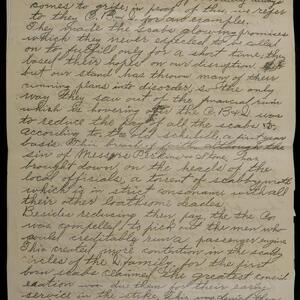 comes to grief, in proof of this, is refer
to they C. B & Q for an example.
They made the scabs glowing promises
which they never expected to be called
on to fulfill only for a short time, they
based their hopes on our disruption
but our stand has thrown many of their
cunning plans into disorder, so the only
way they saw out of the financial ruin
which is hovering over the C. B & Q was
to reduce the pay of all the scabs &c.
according to the old schedule, a first year
basis. This breach of faith although the
sin of Messrs Perkins & Stone, has
brought down on the heads of the
local officials, a torrent of scabby wrath
which is in strict consonance with all
their other loathsome deeds.
Besides reducing their pay, the the Co.
was compelled, to pick out the men who
could creditably run a passenger engine
This created more contention in the scabby
circles of the Q family, for the first
born scabs claimed the greatest consid
eration was due them for their early
service in the strike. This